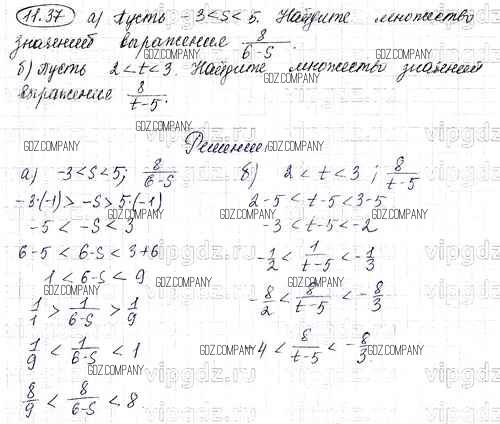 11.37 а) Пусть -3<s<5. Найдите множество
значений выражения 8/(6-s).
б) Пусть 2<t<3. Найдите множество значений
выражения 8/(t-5).
Решение
а) -3<s<5; 8/(6-s)
-3·(-1)>-s>5·(-1)
-5<-s<3
6-5<6-s<3+6
1<6-s<9
1/1>1/(6-s)>1/9
1/9<1/(6-s)<1
8/9<8/(6-s)<8
б) 2<t<3; 8/(t-5)
2-5<t-5<3-5
-3<t-5<-2
-1/2<1/(t-5)<-1/3
-8/2<8/(t-5)<-8/3
-4<8/(t-5)<-8/3
GDZ.COMPANY
vipgdz.ru